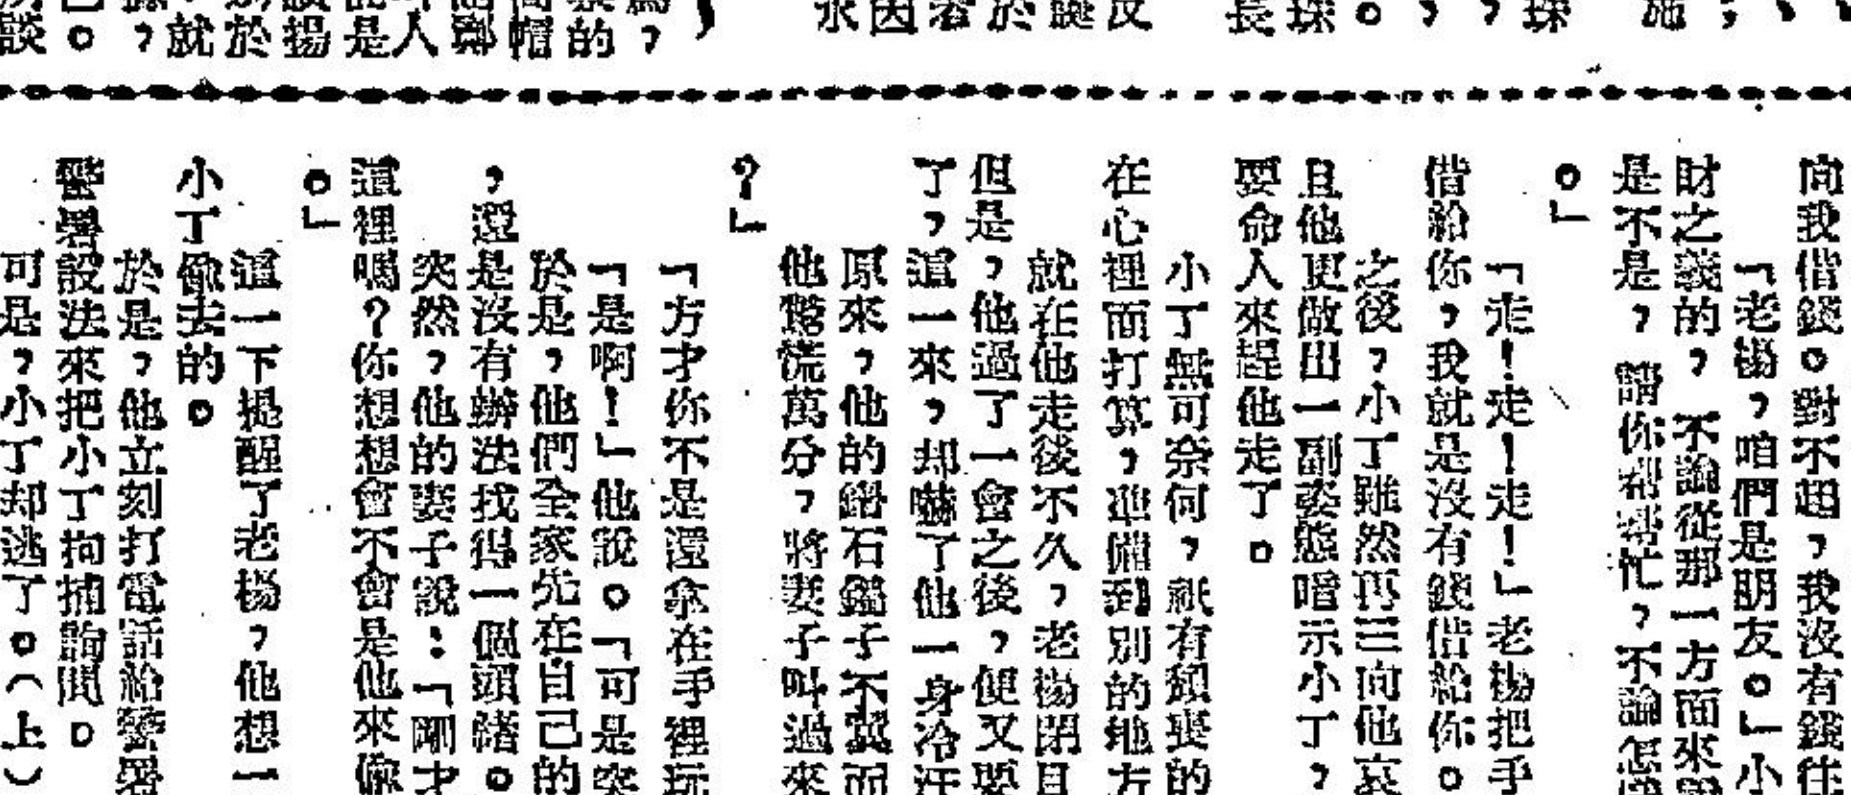 反
誕
於
若
因
永
施
球
，
，
。
球
長
，
的
帽
鄰
人
是
揚
於
就，
。
談
向我借錢。對不起，我沒有錢往
「老楊，咱們是朋友。」小
財之義的，不論從那一方面來說
是不是，請你幫幫忙，不論怎樣
。」
「走！走！走！」老楊把手
借給你，我就是沒有錢借給你。
之後，小丁雖然再三向他哀
且他更做出一副姿態暗示小丁，
要命人來趕他走了。
小丁無可奈何，祇有頹喪的
在心裡面打算，準備到別的地方
就在他走後不久，老楊閉目
但是，他過了一會之後，便又要
了，這一來，却嚇了他一身冷汗
原來，他的鑽石鐲子不翼而
他驚慌萬分，將妻子叫過來
？」
「方才你不是還拿在手裡玩
「是啊！」他說。「可是突
於是，他們全家先在自己的
，還是沒有辦法找得一個頭緒。
突然，他的妻子說：「剛才
這裡嗎？你想想會不會是他來偸
。」
這一下提醒了老楊，他想一
小丁偸去的。
於是，他立刻打電話給警署
警署設法來把小丁拘捕詢問。
可是，小丁却逃了。（上）